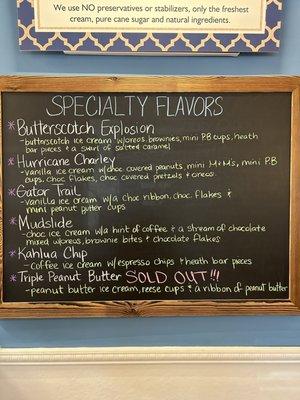 We use NO preservatives or stabilizers, only the freshest
cream, pure cane sugar and natural ingredients.
SPECIALTY FLAVORS
* Butterscotch Explosion
- butterscotch ice cream w/oreos, brownies, mini PB cups, heath
bar pieces & a swirl of salted caramel
* Hurricane Charley
- vanilla ice cream w/choc covered peanuts, mini M+M's, mini PB
cups, choc flakes, choc covered pretzels & oreos
* Gator Trail
- vanilla ice cream w/a choc ribbon, choc flakes &
mini peanut butter cups
* Mudslide
- choc ice cream w/a hint of coffee & a stream of chocolate
mixed w/oreos, brownie bites & chocolate flakes
* Kahlua Chip
- coffee ice cream w/espresso chips & heath bar pieces
* Triple Peanut Butter SOLD OUT!!!
- peanut butter ice cream, reese cups & a ribbon of peanut butter